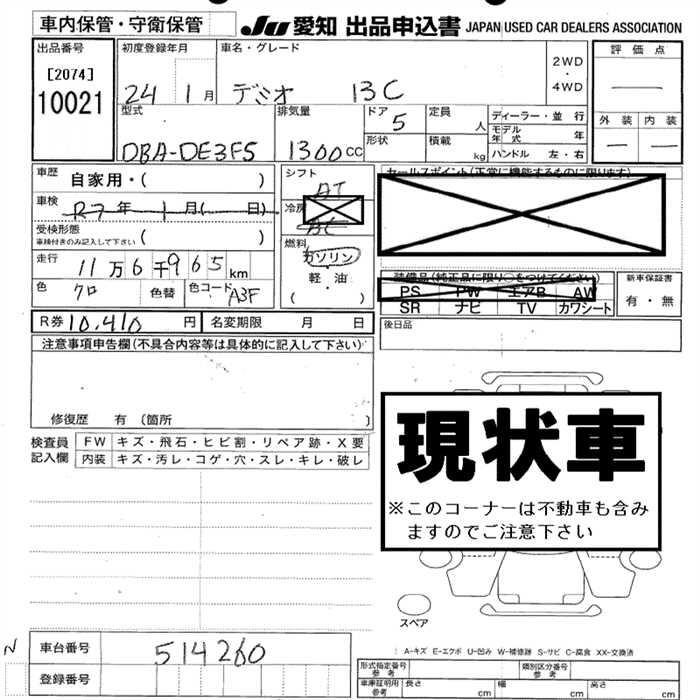 車内保管・守衛保管 JU 愛知 出品申込書 JAPAN USED CAR DEALERS ASSOCIATION
出品番号 初度登録年月 車名・グレード 2WD・4WD 評価点
[2074] 24 1月 デミオ 13C
10021 型式 排気量 ドア 定員 人 ディーラー・並行 外装 内装
DBA-DE3FS 1300cc 5 形状 積載 kg モデル年式 年
ハンドル 左・右
車歴 自家用・( ) シフト AT セールスポイント(正常に機能するものに限ります)
車検 R7年 1月( 日) 冷房 AC
受検形態 車検付きのみ記入して下さい ( )
走行 11万6千965km 燃料 ガソリン
軽・油
( )
色 クロ 色替 色コード A3F
装備品(純正品に限り○をつけてください) 新車保証書
PS PW エアB AW 有・無
SR ナビ TV カワシート
R券 10,410円 名変期限 月 日 後日品
注意事項申告欄(不具合内容等は具体的に記入して下さい)
修復歴 有 (箇所 )
現状車
※このコーナーは不動車も含みますのでご注意下さい
検査員記入欄 FW キズ・飛石・ヒビ割・リペア跡・X要
内装 キズ・汚レ・コゲ・穴・スレ・キレ・破レ
スペア
N 車台番号 514260
登録番号
A-キズ E-エクボ U-凹み W-補修跡 S-サビ C-腐食 XX-交換済
形式指定番号 参考 類別区分番号 参考
車庫証明用 参考 長さ cm 幅 cm 高さ cm